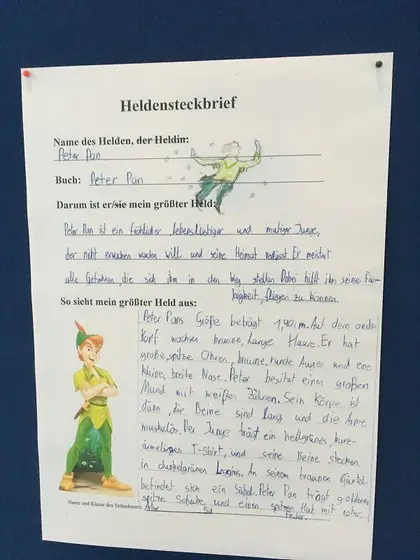 Heldensteckbrief
Name des Helden, der Heldin:
Peter Pan
Buch: Peter Pan
Darum ist er/sie mein größter Held:
Peter Pan ist ein fröhlicher, lebenslustiger und mutiger Junge,
der nicht erwachsen werden will und seine Heimat verlässt. Er meistert
alle Gefahren, die sich ihm in den Weg stellen. Dabei hilft ihm seine Fäh-
higkeit, fliegen zu können.
So sieht mein größter Held aus:
Peter Pans Größe beträgt 1,40cm. Auf dem
Kopf wachsen braune, lange Haare. Er hat
große, spitze Ohren, braune, runde Augen und eine
kleine, breite Nase. Peter besitzt einen großen
Mund mit weißen Zähnen. Sein Körper ist
dünn, die Beine sind lang und die Arme
muskulös. Der Junge trägt ein hellgrünes, kurz-
ärmeliges T-Shirt, und seine Beine stecken
in dunkelgrünen Leggins. An seinem braunen Gürtel
befindet sich ein Säbel. Peter Pan trägt goldene,
spitze Schuhe und einen spitzen Hut mit roter
Feder.
Name und Klasse des 5d